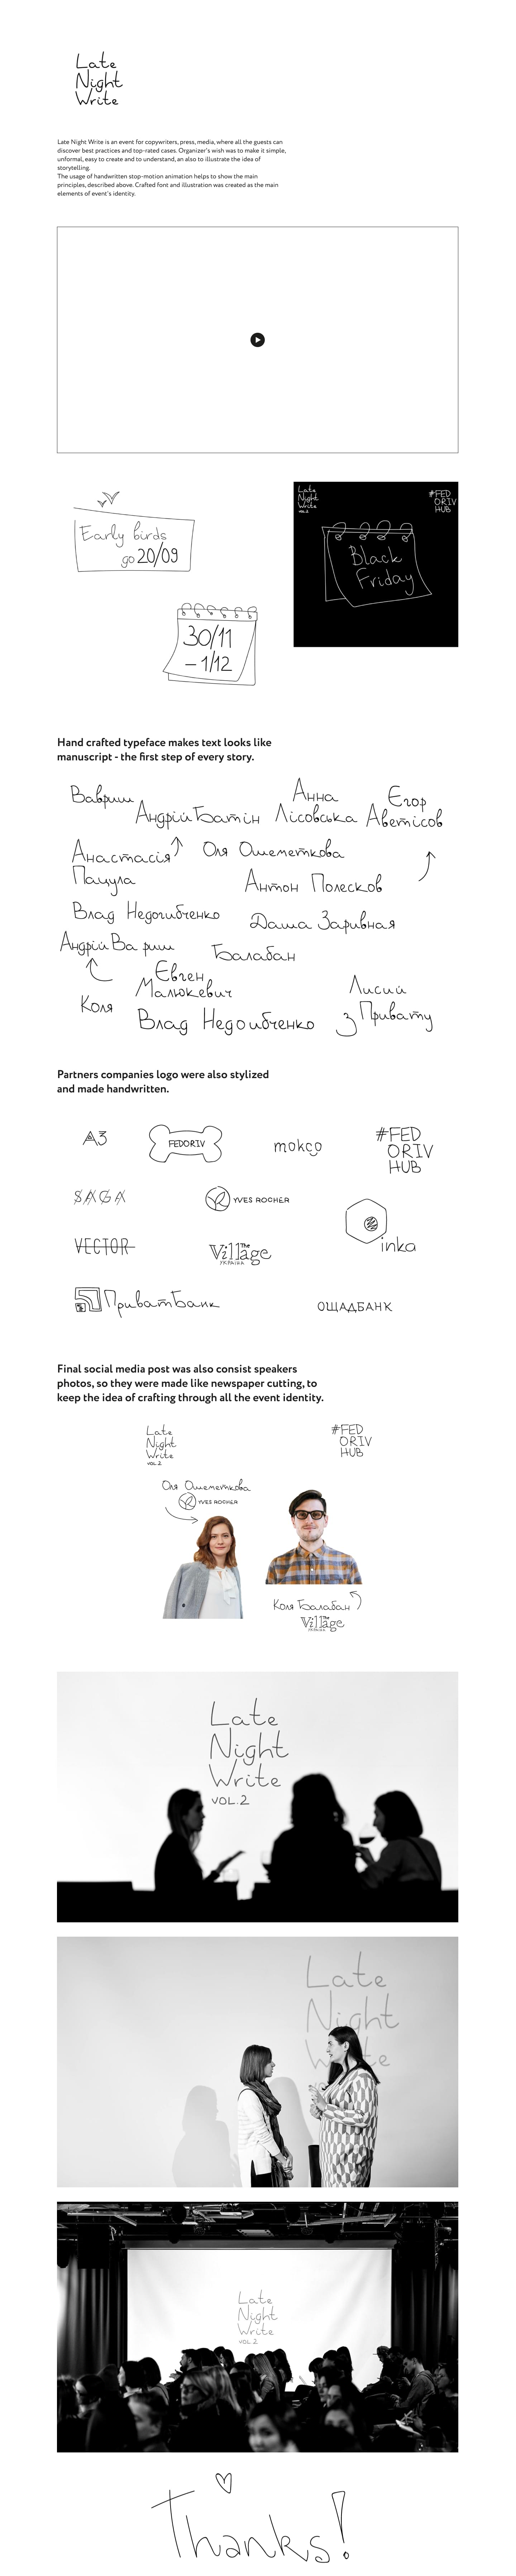 Late
Night
Write
Late Night Write is an event for copywriters, press, media, where all the guests can
discover best practices and top-rated cases. Organizer's wish was to make it simple,
unformal, easy to create and to understand, an also to illustrate the idea of
storytelling.
The usage of handwritten stop-motion animation helps to show the main
principles, described above. Crafted font and illustration was created as the main
elements of event's identity.
Early birds
go 20/09
30/11
– 1/12
Late
Night
Write
VOL.2
#FED
ORIV
HUB
Black
Friday
Hand crafted typeface makes text looks like
manuscript - the first step of every story.
Вавриш
Андрій Батін
Анна
Лісовська
Єгор
Аветісов
Анастасія
Пацула
Оля Ошеметкова
Антон Полесков
Влад Недогибченко
Даша Заривная
Андрій Ва риш
Балабан
Євген
Малюкевич
Коля
Влад Недо ибченко
Лисий
з Привату
Partners companies logo were also stylized
and made handwritten.
АЗ
FEDORIV
mokco
#FED
ORIV
HUB
SAGA
YVES ROCHER
inka
VECTOR
The
Village
УКРАЇНА
ПриватБанк
ОЩАДБАНК
Final social media post was also consist speakers
photos, so they were made like newspaper cutting, to
keep the idea of crafting through all the event identity.
Late
Night
Write
VOL.2
#FED
ORIV
HUB
Оля Ошеметкова
YVES ROCHER
Коля Балабан
The
Village
УКРАЇНА
Late
Night
Write
VOL.2
Late
Night
Write
Late
Night
Write
VOL 2
Thanks!